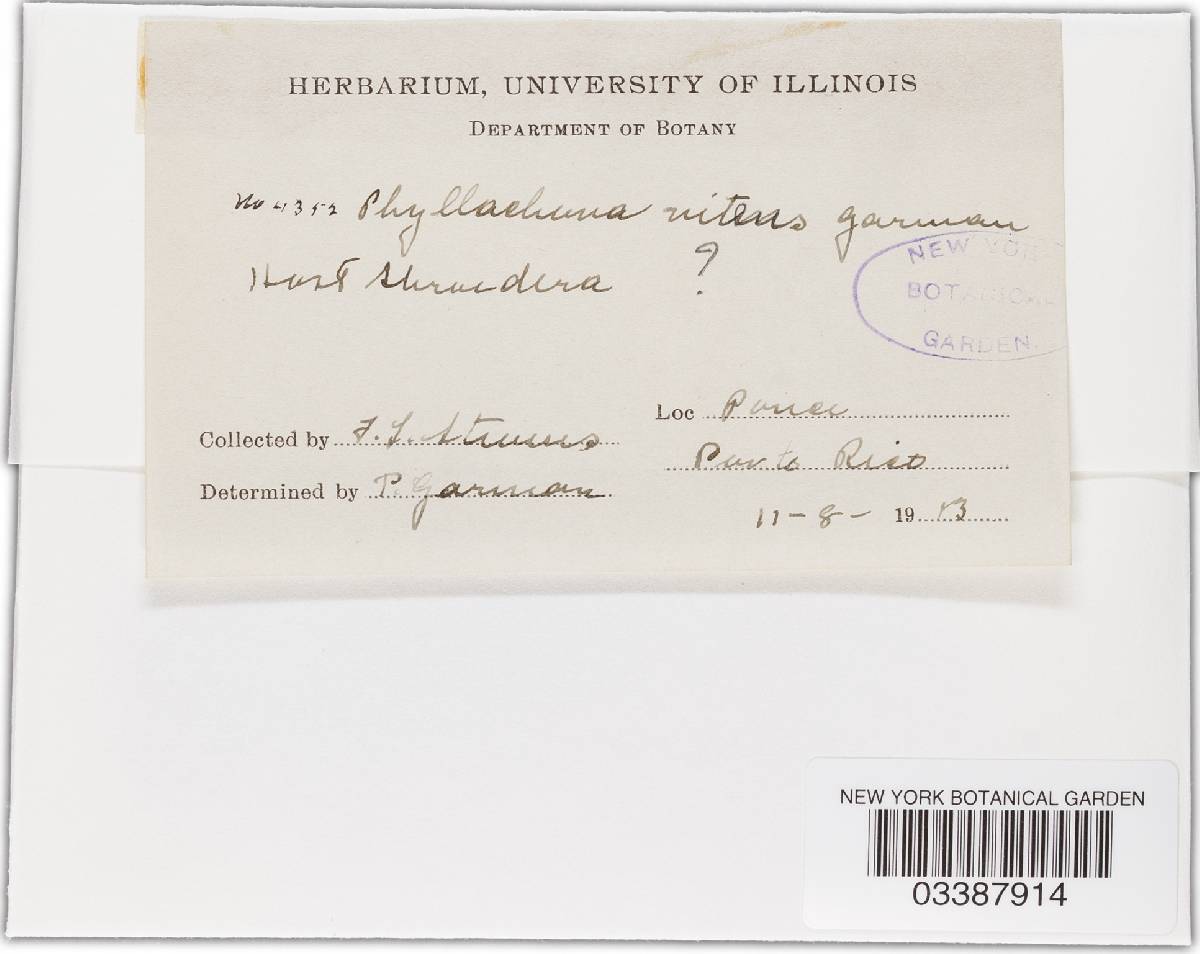 HERBARIUM, UNIVERSITY OF ILLINOIS
DEPARTMENT OF BOTANY
No 4352 Phyllachora nitens Garman
Host Shroedera ?
NEW YORK
BOTANICAL
GARDEN.
Collected by F. L. Stevens
Determined by P. Garman
Loc Ponce
Porto Rico
11-8-1913
NEW YORK BOTANICAL GARDEN
03387914